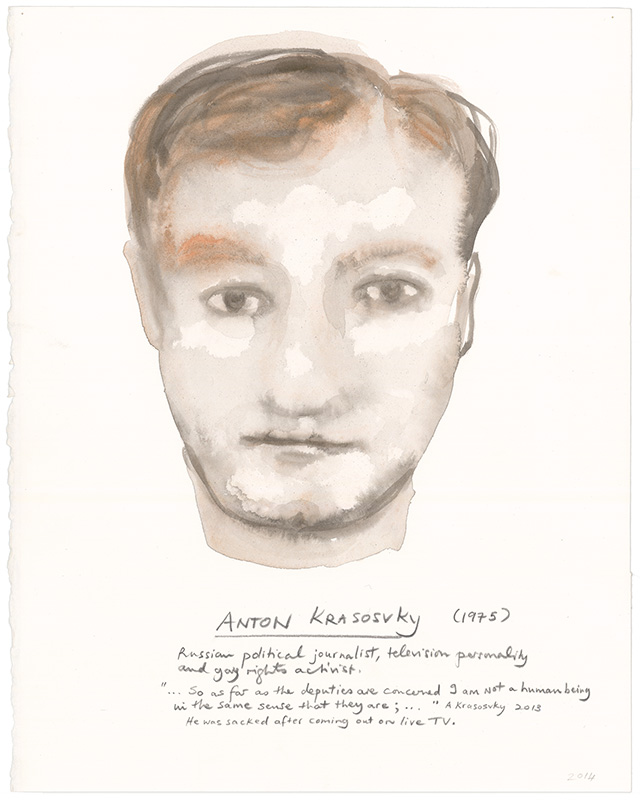 ANTON KRASOSVKY (1975)
Russian political journalist, television personality
and gay rights activist.
"... So as far as the deputies are concerned I am not a human being
in the same sense that they are; ... " A Krasosvky 2013
He was sacked after coming out on live TV.
2014